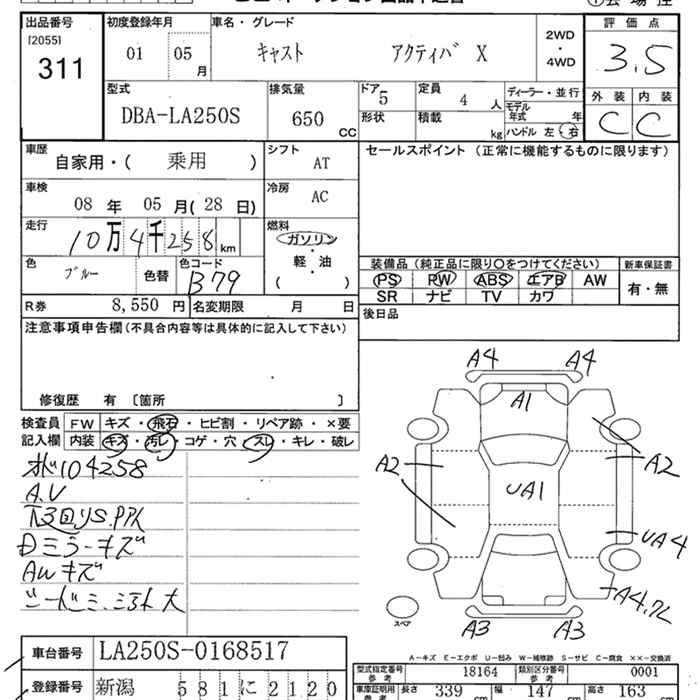 出品番号 初度登録年月 車名・グレード 評価点
[2055]
311
01 05月 キャスト アクティバ X 2WD・4WD 3.5
外装 内装
C C
型式 排気量 ドア 定員 ディーラー・並行
DBA-LA250S 650cc 5 4人 モデル年式 年
形状 積載 kg ハンドル 左・右
車歴 シフト セールスポイント (正常に機能するものに限ります)
自家用・( 乗用 ) AT
車検 冷房
08年 05月(28日) AC
走行 燃料
10万4千258km ガソリン・軽・油
( )
色 色コード 装備品 (純正品に限り〇をつけてください) 新車保証書
ブルー 色替 B79 PS PW ABS エアB AW 有・無
SR ナビ TV カワ
R券 8,550円 名変期限 月 日 後日品
注意事項申告欄(不具合内容等は具体的に記入して下さい)
修復歴 有 〔箇所 〕
検査員 FW キズ・飛石・ヒビ割・リペア跡・×要
記入欄 内装 キズ・汚レ・コゲ・穴・スレ・キレ・破レ
104258
A.V
Dミラーキズ
AWキズ
A4 A4
A1
A2 A2
UA1
UA4
A4.
A3 A3
スペア
A-キズ E-エクボ U-凹み W-補修跡 S-サビ C-腐食 ××-交換済
車台番号 LA250S-0168517
型式指定番号 参考 18164 類別区分番号 参考 0001
登録番号 新潟 581 に 2120
車庫証明用 参考 長さ 339cm 幅 147cm 高さ 163cm